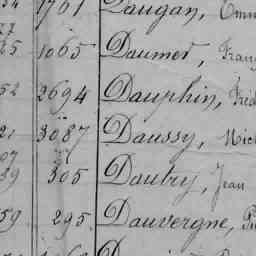 1761 Daugan,
25 1065 Daumer,
52 2694 Dauphin,
3087 Daussy,
07
39 305 Dautry, Jean
59 295 Dauvergne,